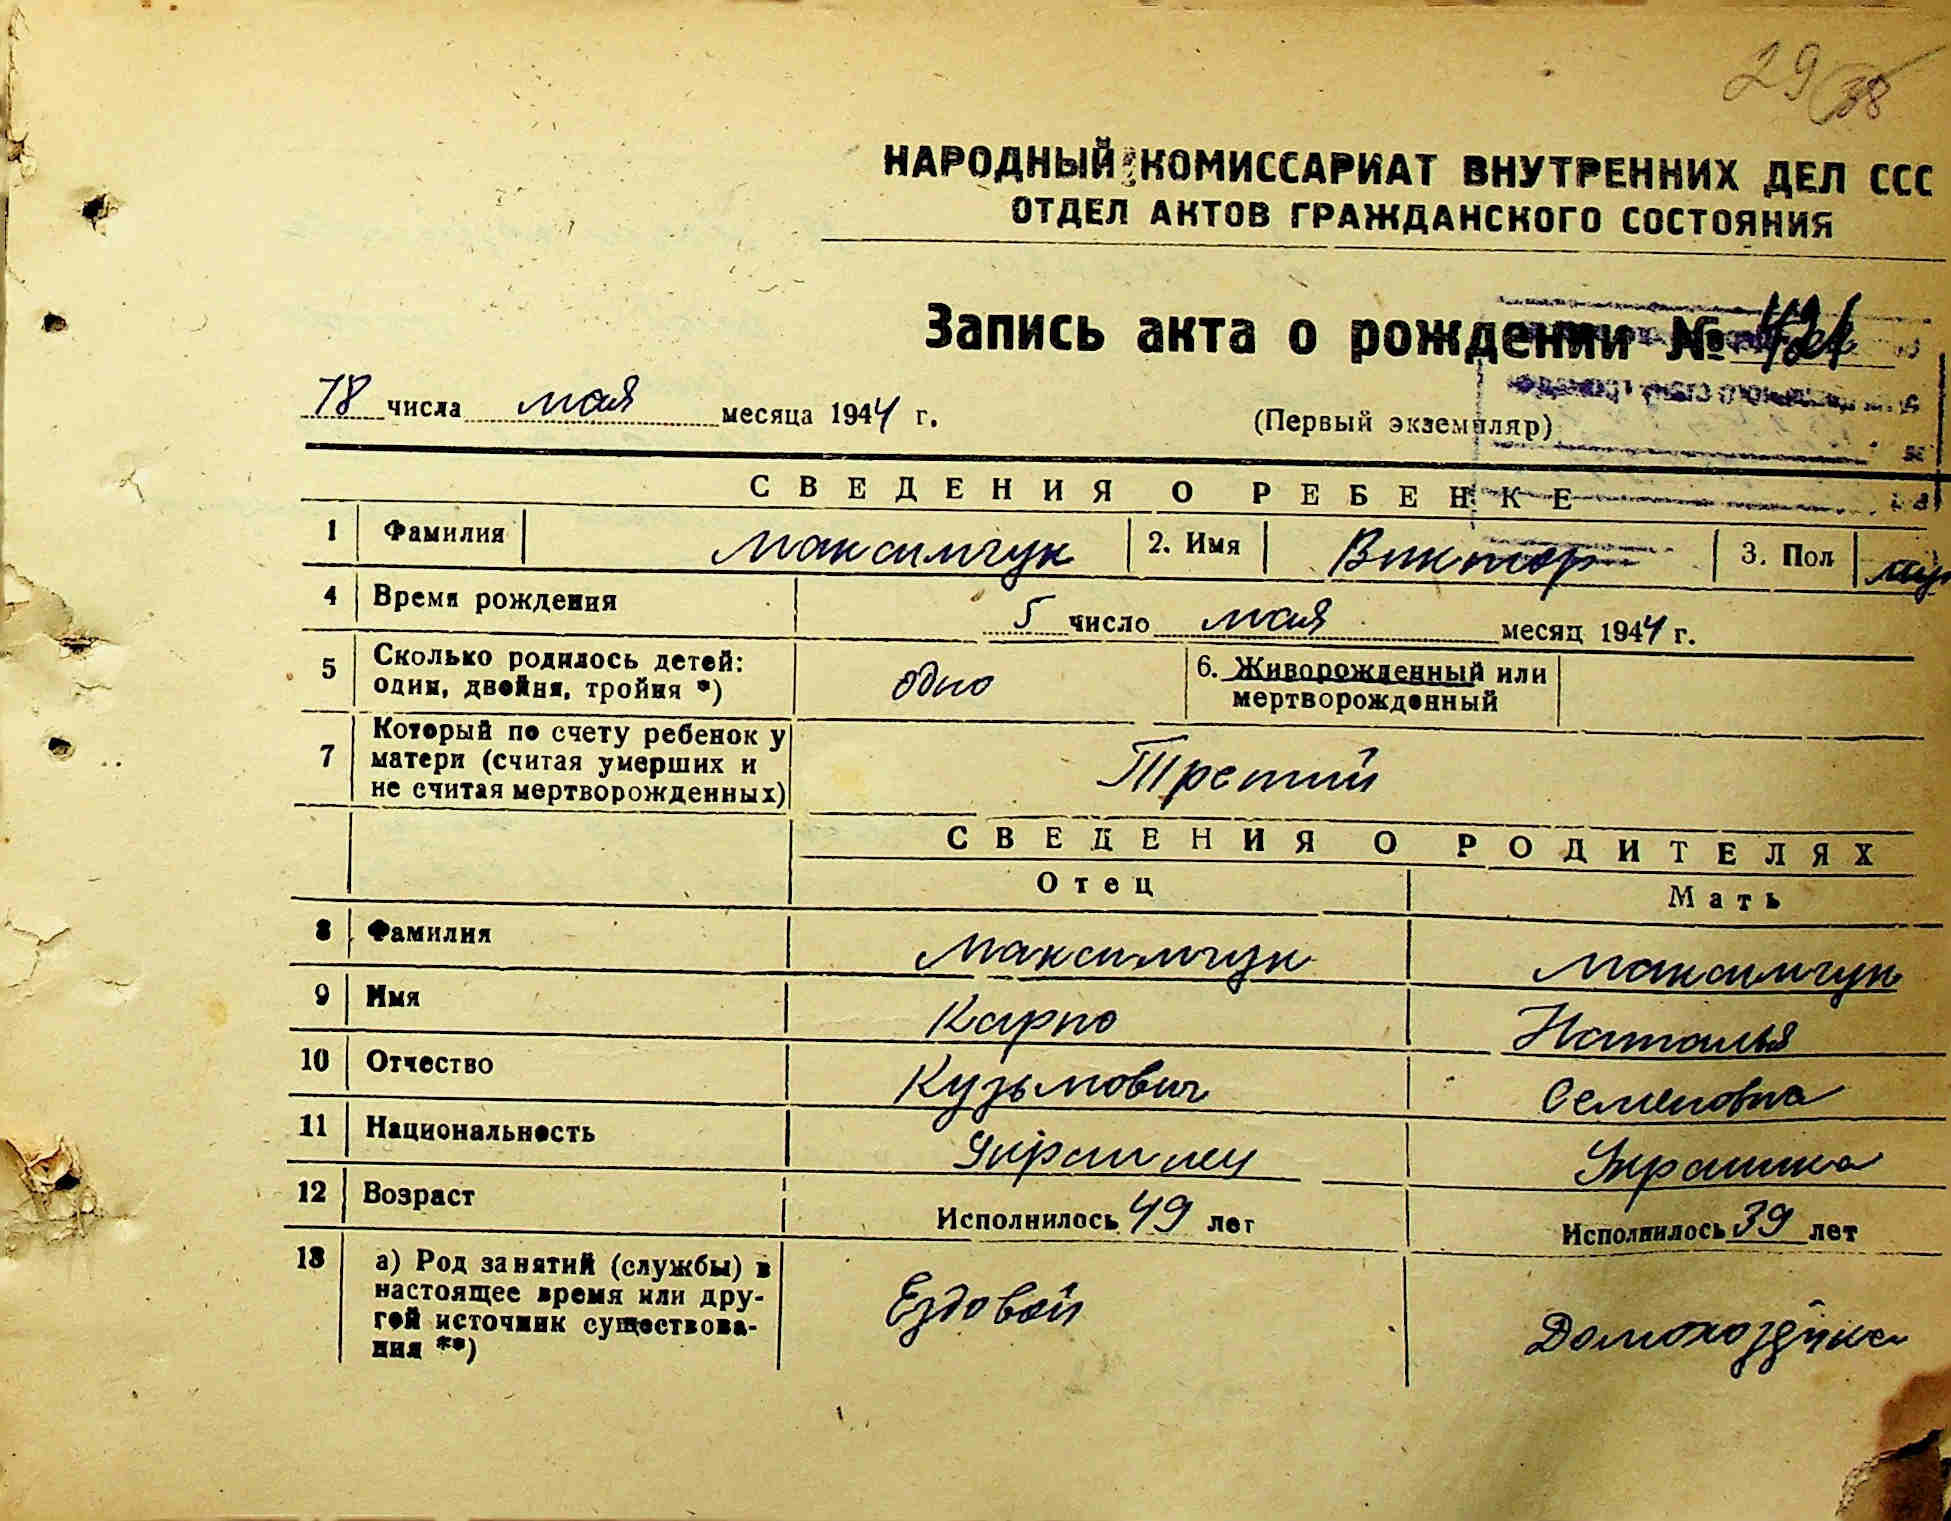 29 38
НАРОДНЫЙ КОМИССАРИАТ ВНУТРЕННИХ ДЕЛ ССС
ОТДЕЛ АКТОВ ГРАЖДАНСКОГО СОСТОЯНИЯ
Запись акта о рождении №
18 числа мая месяца 1944 г. (Первый экземпляр)
СВЕДЕНИЯ О РЕБЕНКЕ
1 Фамилия Максимчук 2. Имя Виктор 3. Пол муж
4 Время рождения 5 число мая месяц 1944 г.
5 Сколько родилось детей: один, двойня, тройня *) одно 6. Живорожденный или мертворожденный
7 Который по счету ребенок у матери (считая умерших и не считая мертворожденных) Третий
СВЕДЕНИЯ О РОДИТЕЛЯХ
Отец Мать
8 Фамилия Максимчук Максимчук
9 Имя Карпо Наталья
10 Отчество Кузьмович Семеновна
11 Национальность Украинец Украинка
12 Возраст Исполнилось 49 лет Исполнилось 39 лет
13 а) Род занятий (службы) в настоящее время или дру-
гой источник существова-
ния **) Ездовой Домохозяйка